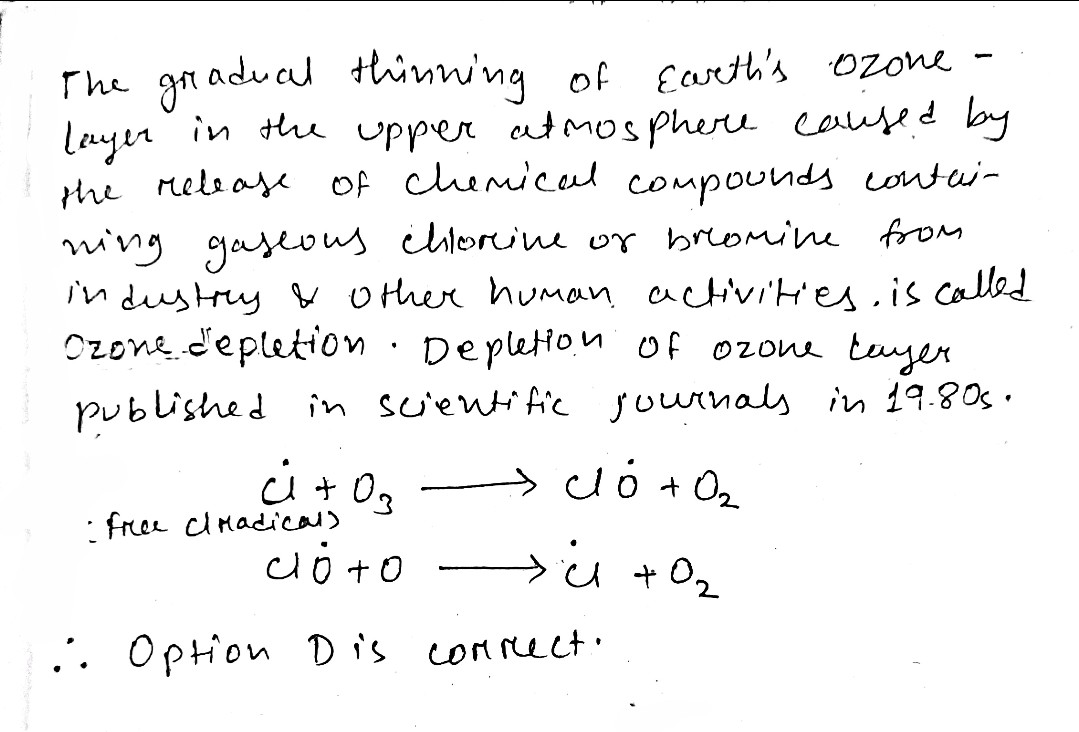 The gradual thinning of Earth's ozone -
layer in the upper atmosphere caused by
the release of chemical compounds contai-
ning gaseous chlorine or bromine from
industry & other human activities. is called
Ozone depletion. Depletion of ozone layer
published in scientific journals in 1980s.
Cl̇ + O₃ ⟶ ClȮ + O₂
: free Cl radical)
ClȮ + O ⟶ Cl̇ + O₂
∴ Option D is correct.